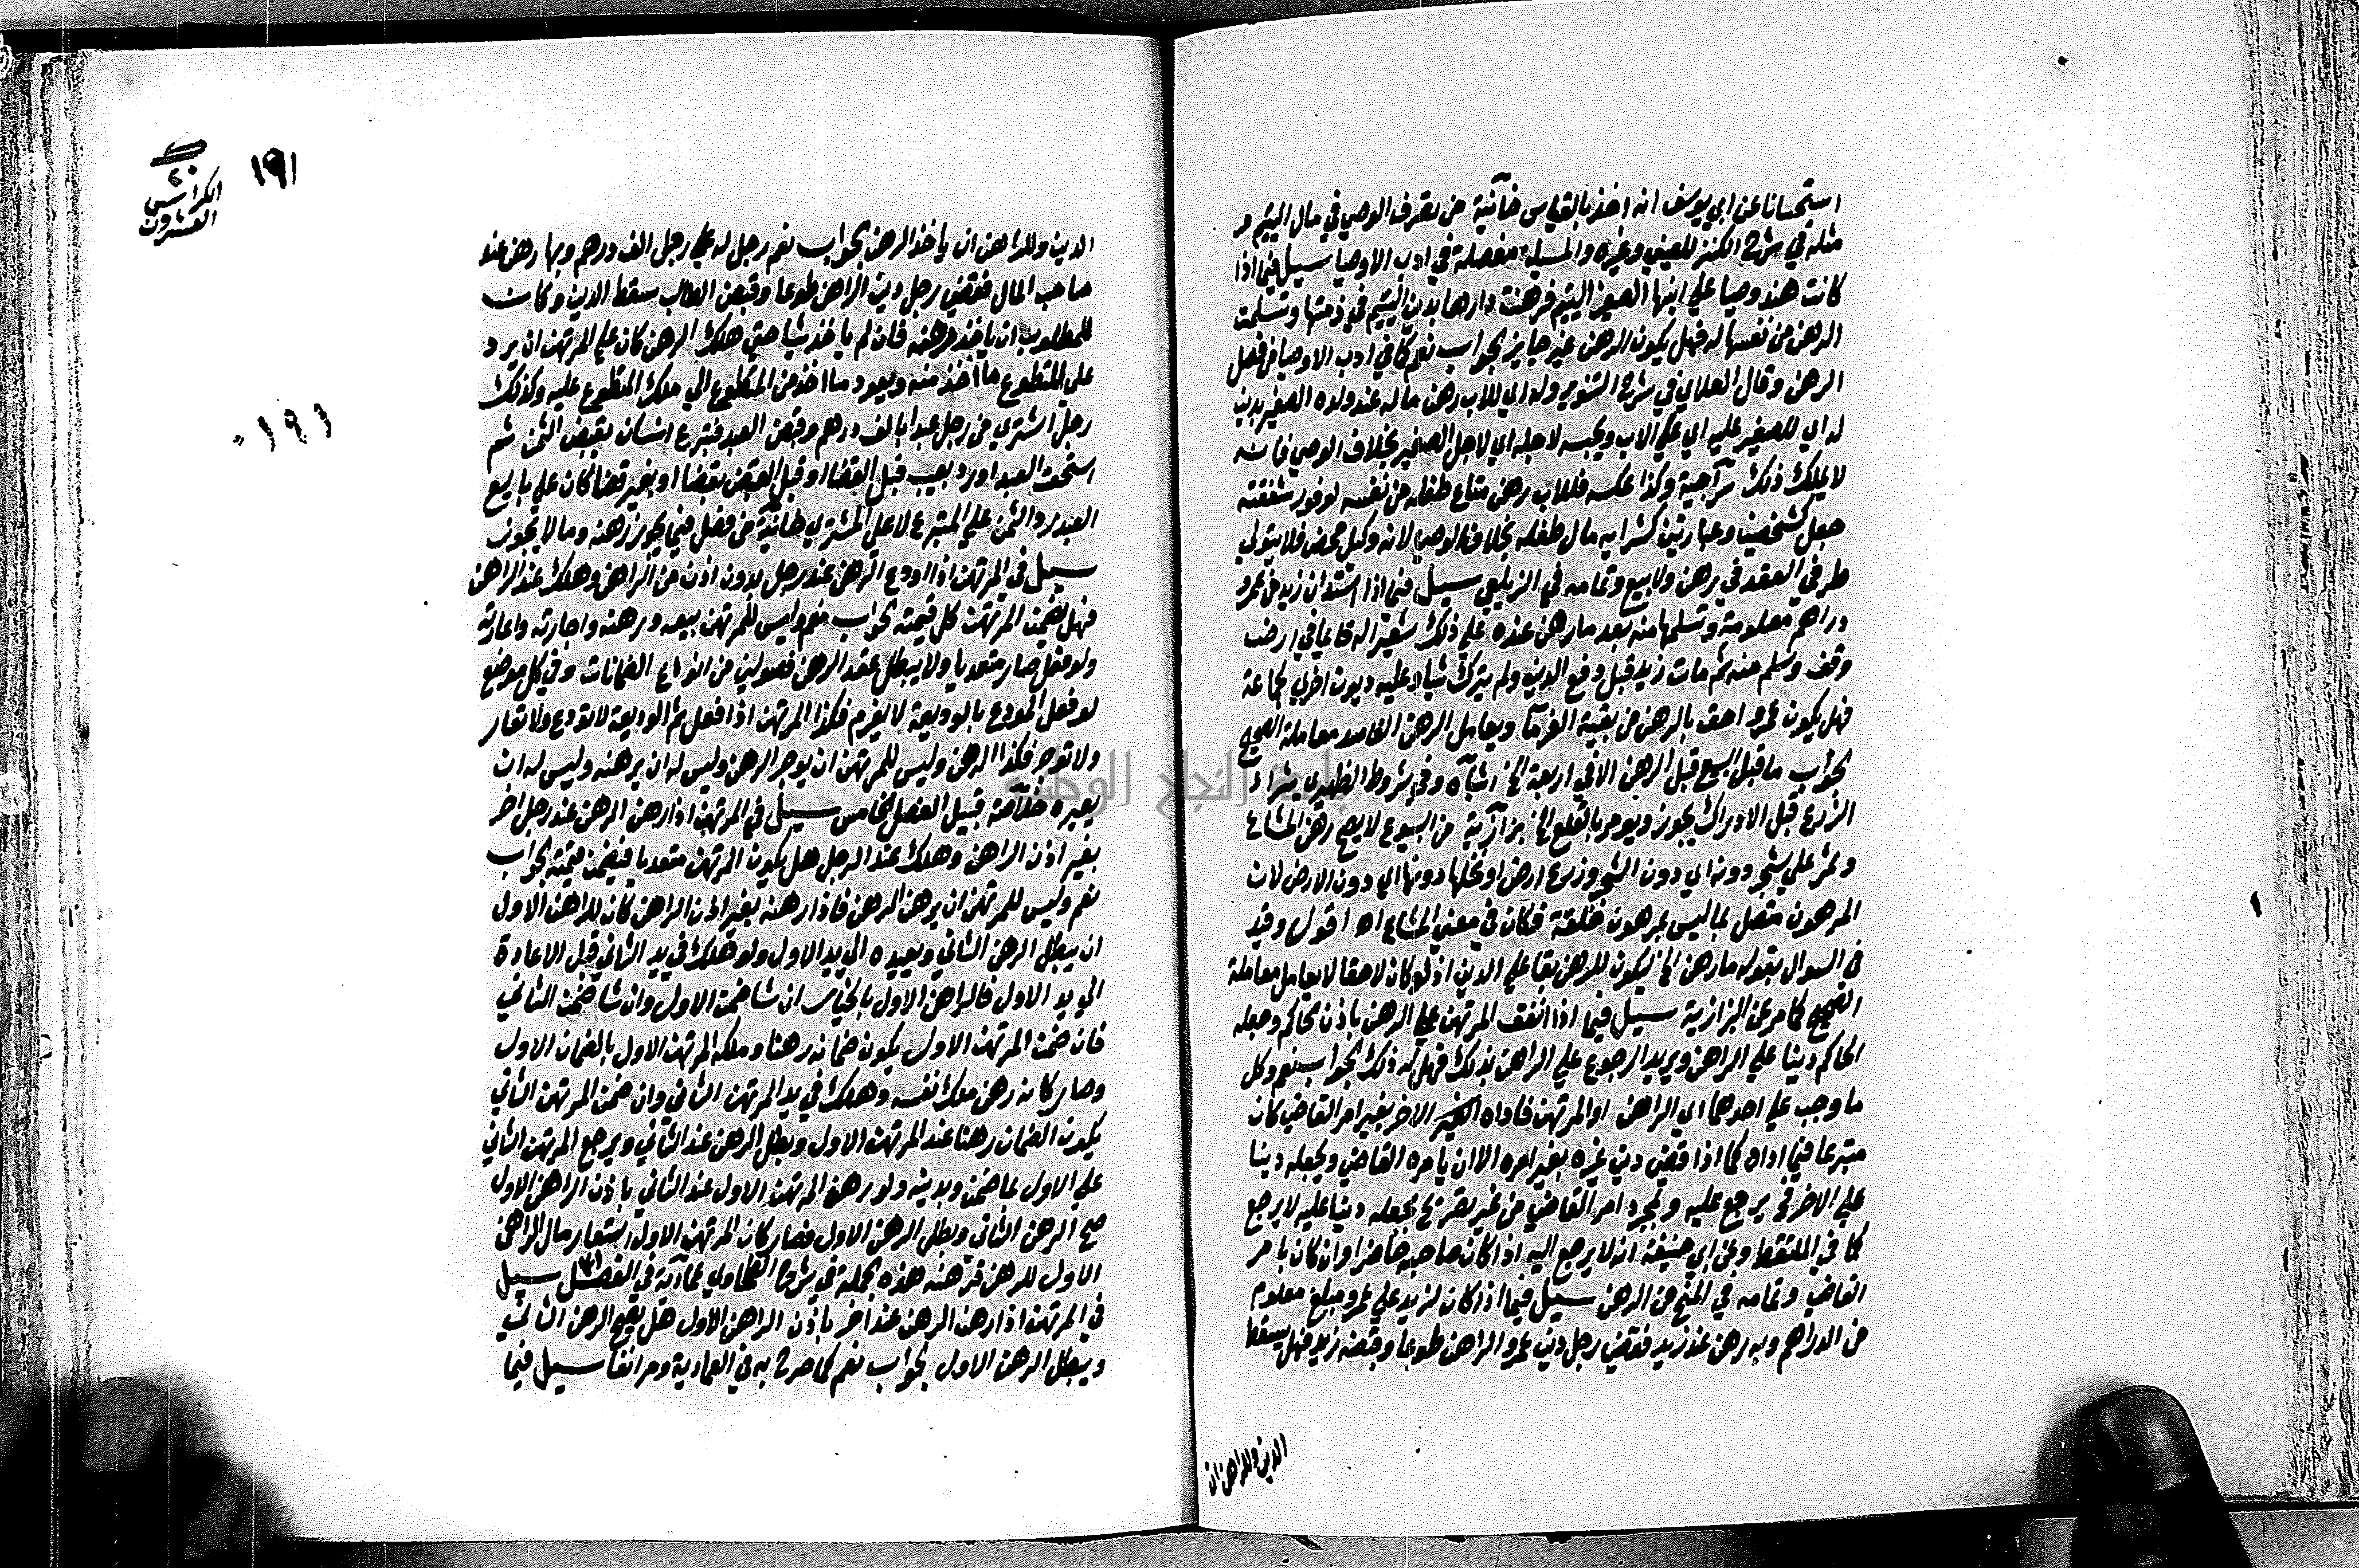 استحسانا عن ابي يوسف انه اخذ بالقياس خانية من تصرف الوصي في مال اليتيم و
مثله في شرح الكنز للعيني وغيره والمسيلة مفصلة في ادب الاوصيا سيل فيما اذا
كانت هند وصيا علي ابنها الصغير اليتيم فرهنت دارها بدين اليتيم في ذمتها وتسلمت
الرهن من نفسها له فهل يكون الرهن غير جايز الجواب نعم كما في ادب الاوصيا في فصل
الرهن وقال العلاني في شرح التنوير وله اي للاب رهن ماله عند ولده الصغير بدين
له اي للصغير عليه اي علي الاب ويحبسه لاجله اي لاجل الصغير بخلاف الوصي فانه
لا يملك ذلك سراجية وكذا عكسه فللاب رهن متاع طفله من نفسه لوفور شفقته
جعل كشخصين وعبارتين كشرايه مال طفله بخلاف الوصي لانه وكيل محض فلا يتولي
طرفي العقد في رهن ولا بيع وتمامه في الزيلعي سيل فيما اذا استدان زيد من عمرو
دراهم معلومة وتسلمها منه بعد ما رهن عنده علي ذلك شعيرا له قايما في ارض
وقف وسلم منه ثم مات زيد قبل دفع الدين ولم يترك شيا وعليه ديون اخري لجماعة
فهل يكون عمرو احق بالرهن من بقية الغرمآ ويعامل الرهن الفاسد معاملة الصحيح
الجواب ما قبل البيع قبل الرهن الا في اربعة الخ اشباه وفي شروط الظهيري شرا
الزرع قبل الادراك يجوز ويومر بالقلع الخ بزازية من البيوع لا يصح رهن المشاع
وثمر علي شجر دونه اي دون الشجر وزرع ارض او نخلها دونها اي دون الارض لان
المرهون متصل بما ليس بمرهون خلقة فكان في معني المشاع اه اقول وقيد
في السوال بقوله ما رهن الخ ليكون للرهن بقا علي الدين اذ لو كان لاحقا لا يعامل معاملة
الصحيح كما مر عن البزازية سيل فيما اذا انفق المرتهن علي الرهن باذن الحاكم وجعله
الحاكم دينا علي الراهن ويريد الرجوع علي الراهن بذلك فهل له ذلك الجواب نعم وكل
ما وجب علي احدهما اي الراهن او المرتهن فاداه الاخر بغير امر القاضي كان
متبرعا فيما اداه كما اذا قضي دين غيره بغير امره الا ان يامره القاضي ويجعله دينا
علي الاخر فح يرجع عليه وبمجرد امر القاضي من غير تصريح بجعله دينا عليه لا يرجع
كما في الملتقط وعن ابي حنيفة انه لا يرجع اليه اذا كان صاحبه حاضرا وان كان بامر
القاضي وتمامه في المنح من الرهن سيل فيما اذا كان لزيد علي عمرو مبلغ معلوم
من الدراهم وبه رهن عند زيد فقضي رجل دين عمرو الراهن طوعا وقبضه زيد فهل يسقط
الدين وللراهن ان
١٩١
الكراس
العشرون
١٩١
الدين وللراهن ان ياخذ الرهن الجواب نعم رجل له علي رجل الف درهم وبها رهن عند
صاحب المال فقضي رجل دين الراهن طوعا وقبض الطالب سقط الدين وكان
للمطلوب ان ياخذ رهنه فان لم ياخذ شيا حتي هلك الرهن كان علي المرتهن ان يرد
علي المتطوع ما اخذ منه ويعود ما اخذ من المتطوع الي ملك المتطوع عليه وكذلك
رجل اشتري من رجل عبدا بالف درهم وقبض العبد فتبرع انسان بقبض الثمن ثم
استحق العبد او رد بعيب قبل القضا او قبل القبض بقضا او بغير قضا كان علي بايع
العبد رد الثمن علي المتبرع لا علي المشتري خانية من فصل فيما يجوز رهنه وما لا يجوز
سيل في المرتهن اذا اودع الرهن عند رجل بدون اذن من الراهن وهلك عند الراهن
فهل يضمن المرتهن كل قيمته الجواب نعم وليس للمرتهن بيعه ورهنه واجارته واعارته
ولو فعل صار متعديا ولا يبطل عقد الرهن فصولين من انواع الضمانات وفي كل موضع
لو فعل المودع بالوديعة لا يغرم فكذا المرتهن اذا فعل ثم الوديعة لا تودع ولا تعار
ولا توجر فكذا الرهن وليس للمرتهن ان يوجر الرهن وليس له ان يرهنه وليس له ان
يعيره خلاصة قبيل الفصل الخامس سيل في المرتهن اذا رهن الرهن عند رجل اخر
بغير اذن الراهن وهلك عند الرجل هل يكون المرتهن متعديا فيضمن قيمته الجواب
نعم وليس للمرتهن ان يرهن الرهن فاذا رهنه بغير اذن الراهن كان للراهن الاول
ان يبطل الرهن الثاني ويعيده الي يد الاول ولو هلك في يد الثاني قبل الاعادة
الي يد الاول فالراهن الاول بالخيار ان شا ضمن الاول وان شا ضمن الثاني
فان ضمن المرتهن الاول يكون ضمانه رهنا وملكه المرتهن الاول بالضمان الاول
وصار كانه رهن ملك نفسه وهلك في يد المرتهن الثاني وان ضمن المرتهن الثاني
يكون الضمان رهنا عند المرتهن الاول وبطل الرهن عند الثاني ويرجع المرتهن الثاني
علي الاول بما ضمن وبدينه ولو رهن المرتهن الاول عند الثاني باذن الراهن الاول
صح الرهن الثاني وبطل الرهن الاول فصار كان المرتهن الاول استعار مال الراهن
الاول للرهن فرهنه هذه الجملة في شرح الطحاوي عمادية في الفصل ٣١ سيل
في المرتهن اذا رهن الرهن عند اخر باذن الراهن الاول هل يصح الرهن الثاني
ويبطل الرهن الاول الجواب نعم كما صرح به في العمادية ومر انفا سيل فيما